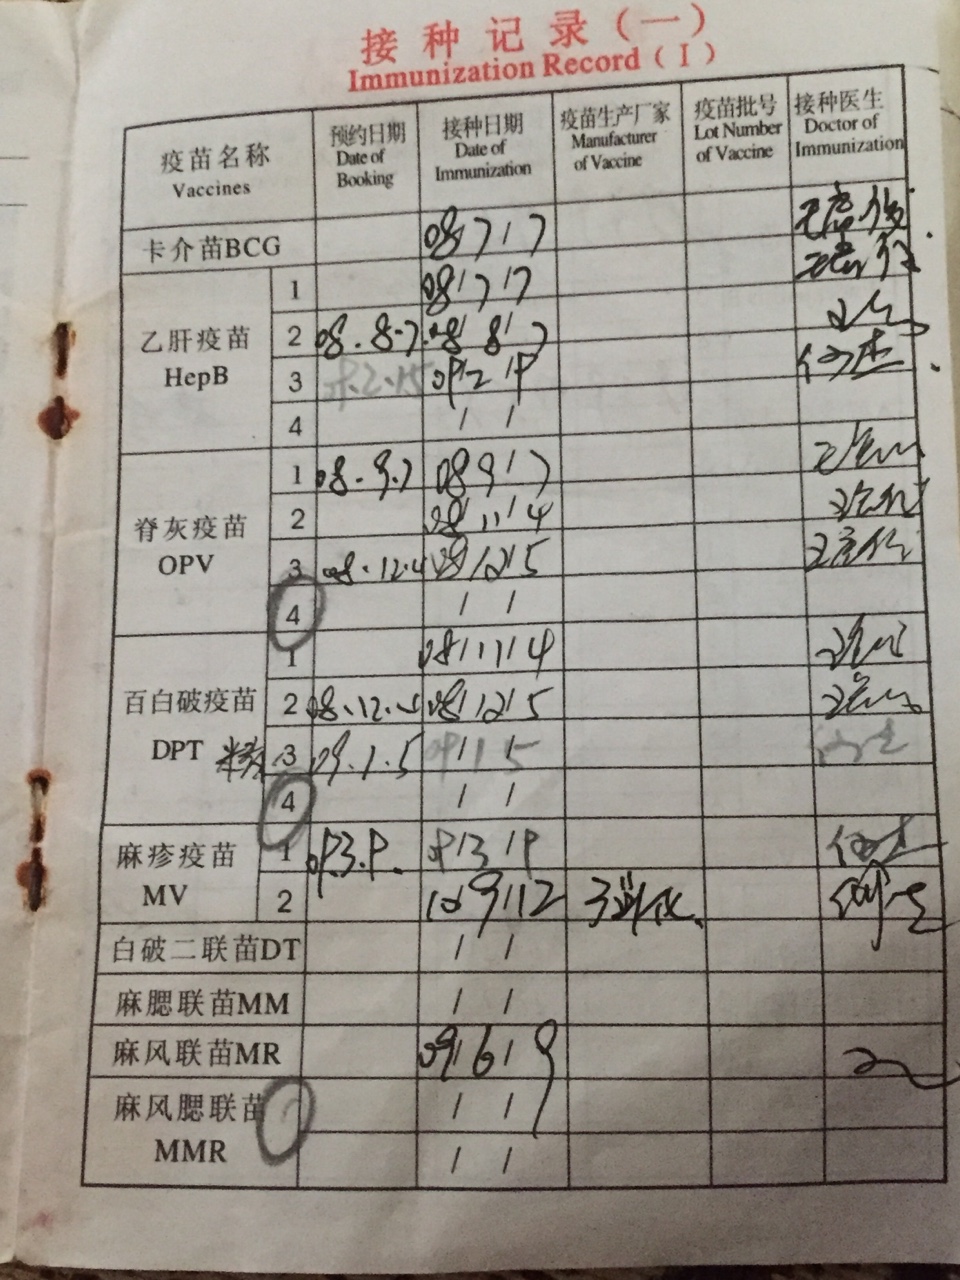 接种记录（一）
Immunization Record（I）
疫苗名称 Vaccines
预约日期 Date of Booking
接种日期 Date of Immunization
疫苗生产厂家 Manufacturer of Vaccine
疫苗批号 Lot Number of Vaccine
接种医生 Doctor of Immunization
卡介苗BCG 08/7/7
乙肝疫苗 HepB
1 08/7/7
2 08.8.7. 08/8/7
3 09/2/9
4 / /
脊灰疫苗 OPV
1 08.9.7 08/9/7
2 08/11/4
3 08.12.4 08/12/5
4 / /
百白破疫苗 DPT
1 08/11/4
2 08.12.5 08/12/5
3 09.1.5 09/1/5
4 / /
麻疹疫苗 MV
1 09.3.9. 09/3/9
2 10/9/12
白破二联苗DT / /
麻腮联苗MM / /
麻风联苗MR 09/6/9
麻风腮联苗 MMR / /
/ /